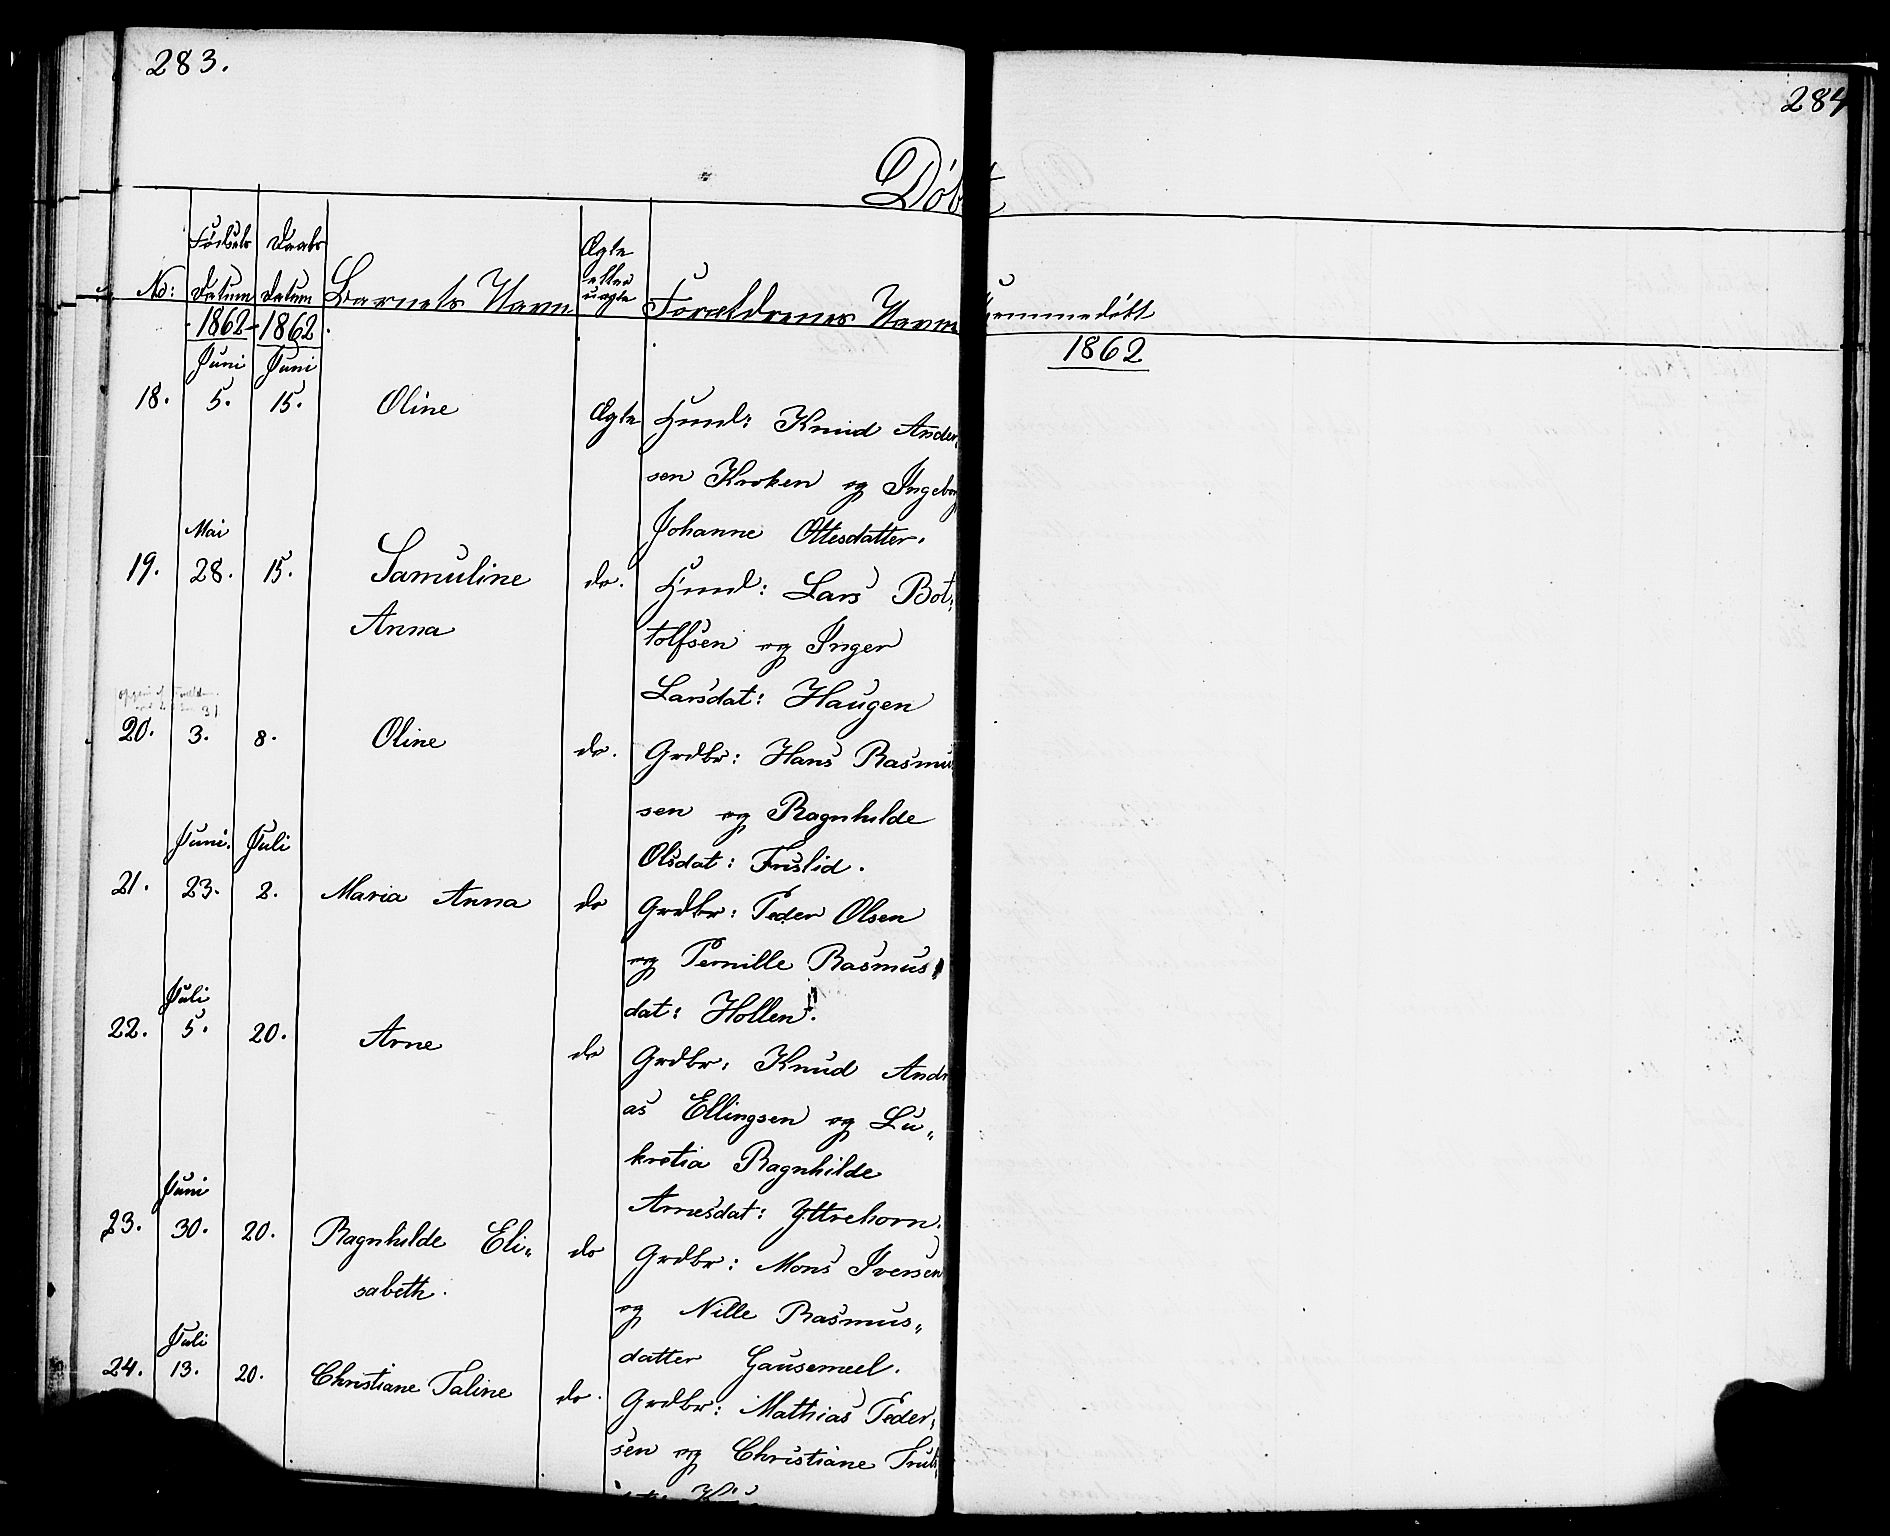 283.
284
Døbt
No:
Fødsels
Datum
Daabs
Datum
Barnets Navn
Ægte
eller
uægte
Forældrenes Navne
Hjemmedøbt
1862
1862.
1862
Juni
Juni
18. 5. 15. Oline Ægte Huusl: Knud Ander,
sen Kroken og Ingeborg
Johanne Ottesdatter.
Mai
19. 28. 15. Samuline do. Huusl: Lars Bot,
Anna tolfsen og Inger
Larsdat: Haugen
31
20. 3. 8. Oline do. Grdbr: Hans Rasmus
sen og Ragnhilde
Olsdat: Fruslid.
Juni. Juli
21. 23. 2. Maria Anna do Grdbr: Peder Olsen
og Pernille Rasmus,
dat: Hollen.
Juli
22. 5. 20. Arne do Grdbr: Knud Andr
as Ellingsen og Lu„
kretia Ragnhilde
Arnesdat: Yttrehorn.
Juni
23. 30. 20. Ragnhilde Eli„ do Grdbr: Mons Iversen
sabeth. og Nille Rasmus„
datter Gausemeel.
Juli
24. 13. 20. Christiane Taline do. Grdbr: Mathias Peder,
sen og Christiane